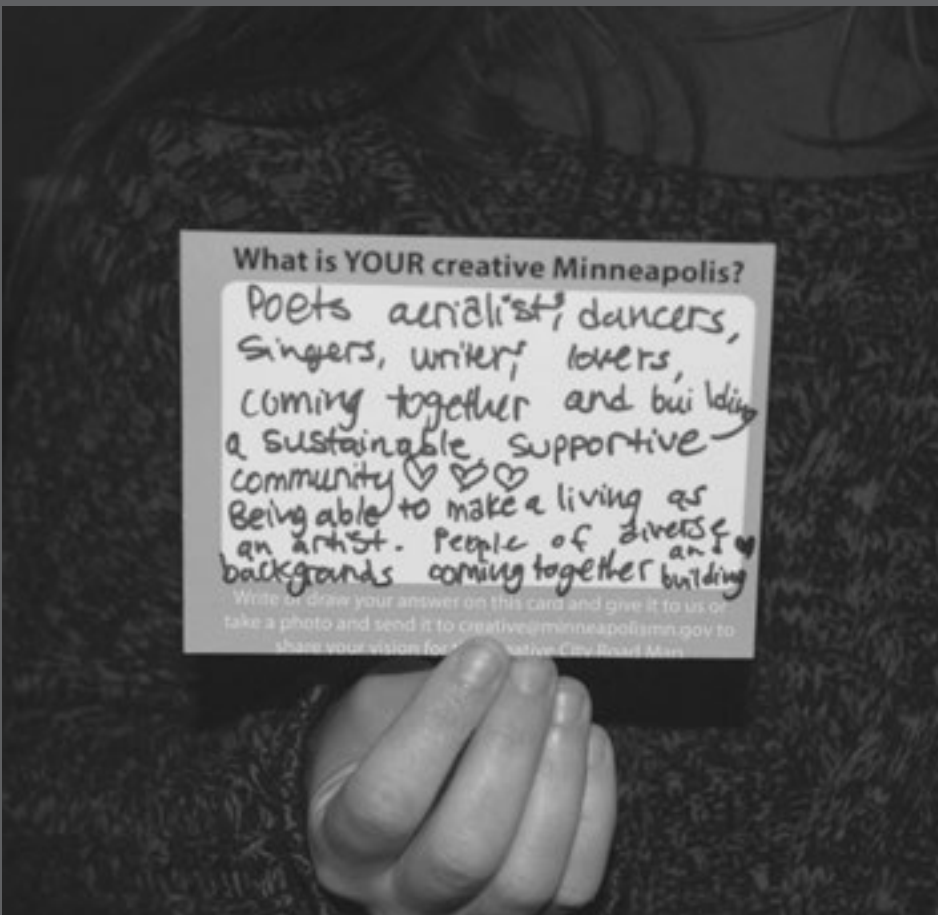 What is YOUR creative Minneapolis?
Poets aerialists, dancers,
Singers, writers, lovers,
coming together and building
a sustainable, supportive
community ♡ ♡ ♡
Being able to make a living as
an artist. People of diverse
backgrounds coming together and ♥ building
Write or draw your answer on this card and give it to us or
take a photo and send it to creative@minneapolismn.gov to
share your vision for Creative City Road Map